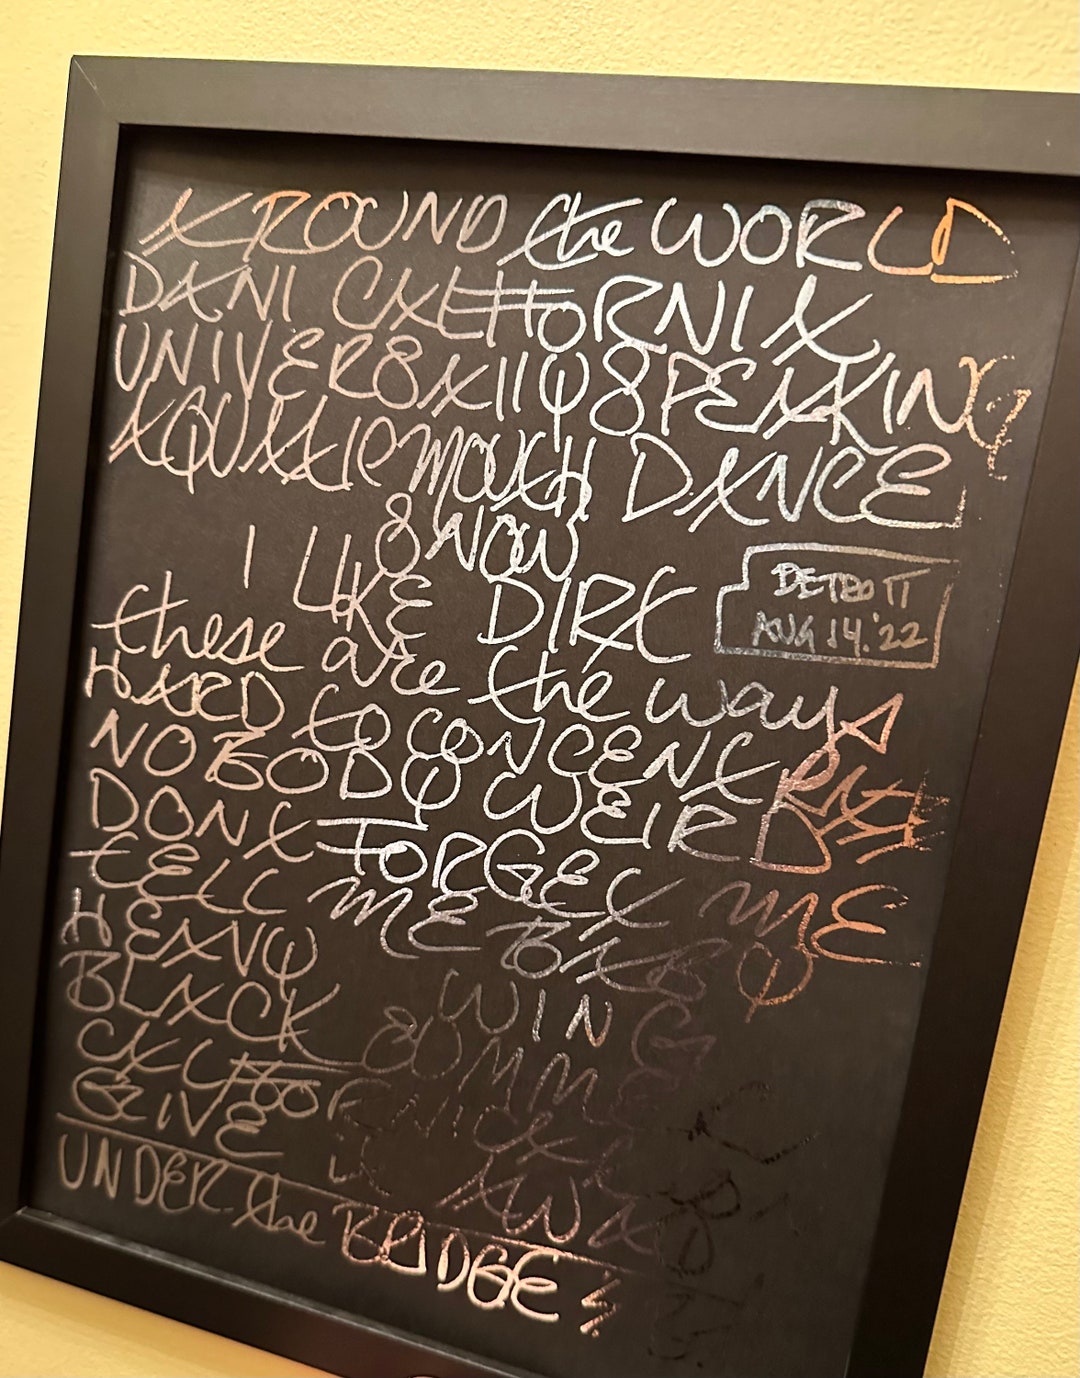 AROUND the WORLD
DANI CALIFORNIA
UNIVERSALLY SPEAKING
AQUATIC MOUTH DANCE
SNOW
I LIKE DIRT
DETROIT
AUG 14.'22
these are the ways
HARD to CONCENTRATE
NOBODY WEIRD
DONT FORGET ME
TELL ME BABY
HEAVY WING
BLACK SUMMER
CALIFORNICATION
GIVE it AWAY
UNDER the BRIDGE